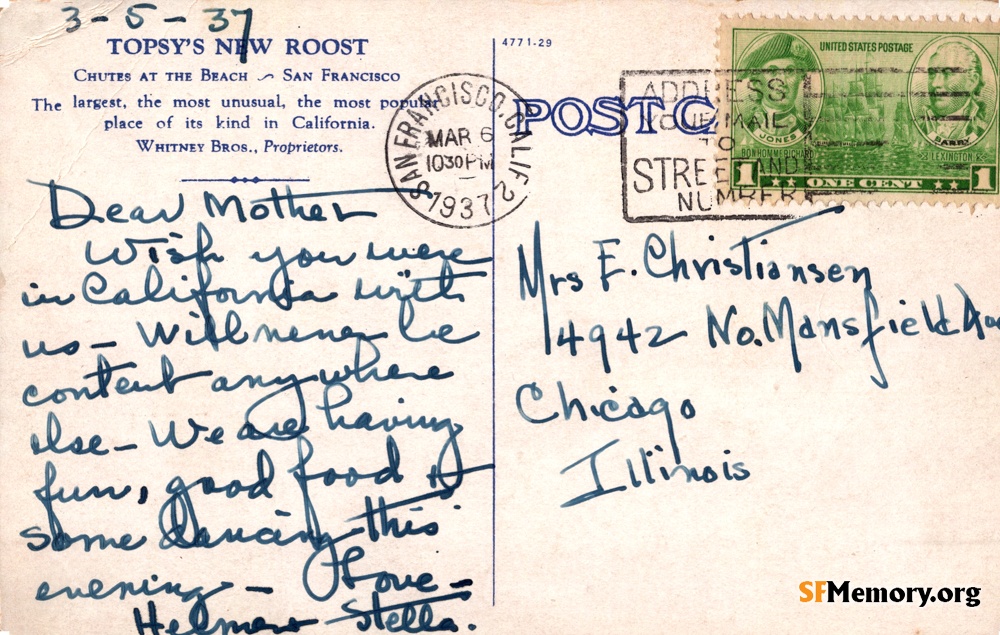 3-5-37
TOPSY'S NEW ROOST
CHUTES AT THE BEACH ~ SAN FRANCISCO
The largest, the most unusual, the most popular
place of its kind in California.
WHITNEY BROS., Proprietors.
Dear Mother
Wish you were
in California with
us — Will never be
content anywhere
else — We are having
fun, good food &
some dancing this
evening — Love —
Helmer Stella.
4771-29
POST C
SAN FRANCISCO, CALIF. 2
MAR 6
1030 PM
1937
ADDRESS
YOUR MAIL
TO
STREET AND
NUMBER
UNITED STATES POSTAGE
JONES
BARRY
BONHOMME RICHARD
LEXINGTON
1 ONE CENT 1
Mrs E. Christiansen
4942 No. Mansfield Ave
Chicago
Illinois
SFMemory.org